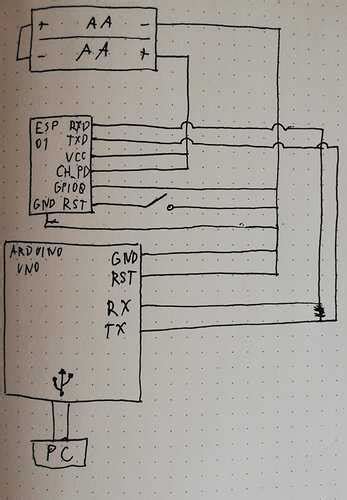 + AA -
AA +
ESP RXD
01 TXD
VCC
CH_PD
GPIO0
GND RST
ARDUINO GND
UNO RST
RX
TX
PC